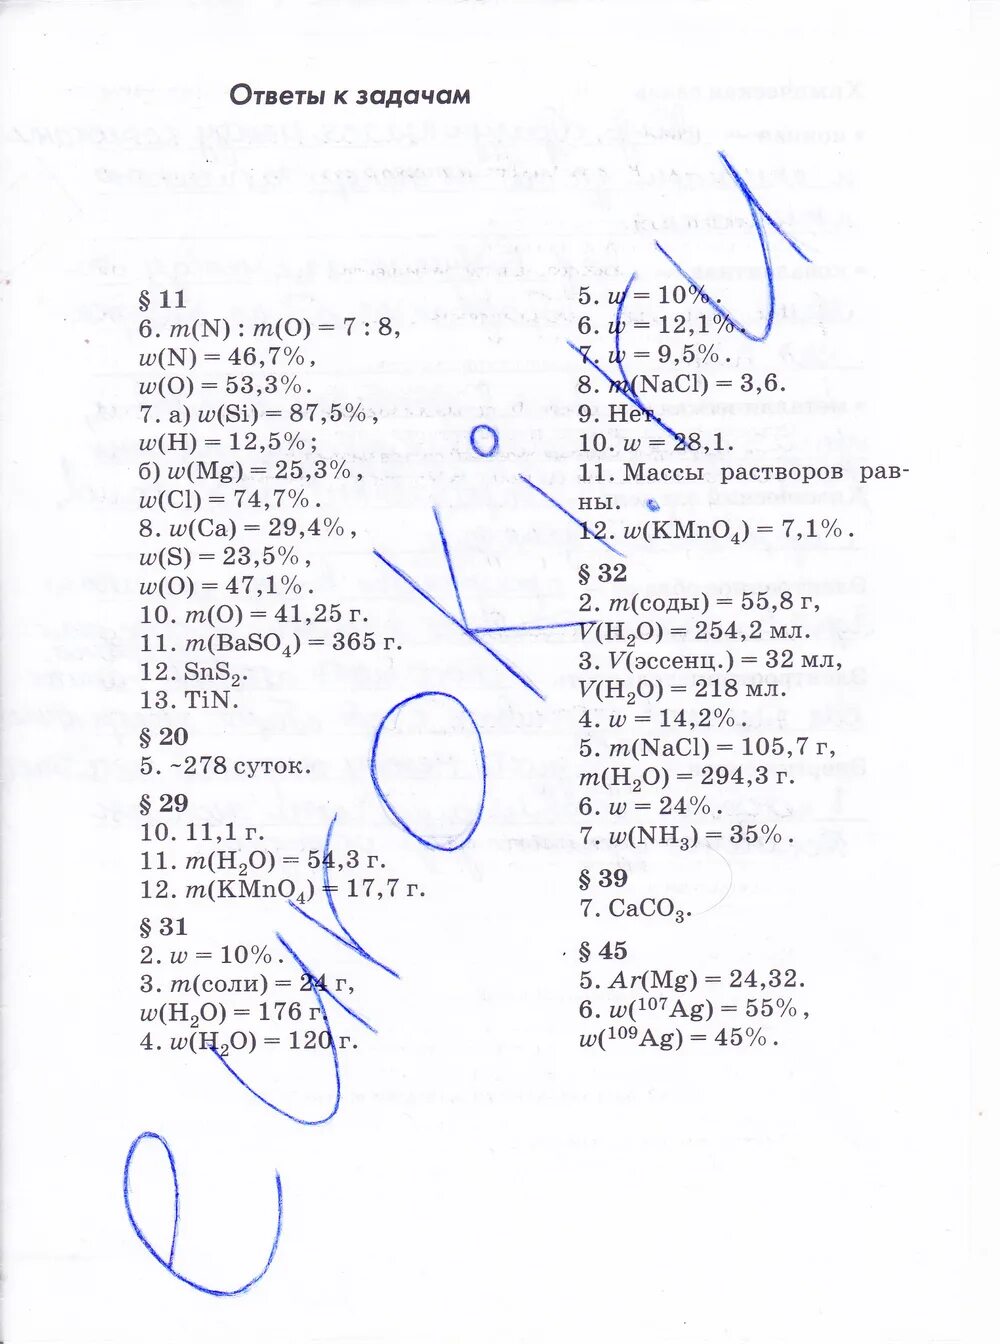 Ответы к задачам
§ 11
6. m(N) : m(O) = 7 : 8,
w(N) = 46,7%,
w(O) = 53,3%.
7. а) w(Si) = 87,5%,
w(H) = 12,5%;
б) w(Mg) = 25,3%,
w(Cl) = 74,7%.
8. w(Ca) = 29,4%,
w(S) = 23,5%,
w(O) = 47,1%.
10. m(O) = 41,25 г.
11. m(BaSO₄) = 365 г.
12. SnS₂.
13. TiN.
§ 20
5. ~278 суток.
§ 29
10. 11,1 г.
11. m(H₂O) = 54,3 г.
12. m(KMnO₄) = 17,7 г.
§ 31
2. w = 10%.
3. m(соли) = 24 г,
w(H₂O) = 176 г.
4. w(H₂O) = 120 г.
5. w = 10%.
6. w = 12,1%.
7. w = 9,5%.
8. m(NaCl) = 3,6.
9. Нет.
10. w = 28,1.
11. Массы растворов рав-
ны.
12. w(KMnO₄) = 7,1%.
§ 32
2. m(соды) = 55,8 г,
V(H₂O) = 254,2 мл.
3. V(эссенц.) = 32 мл,
V(H₂O) = 218 мл.
4. w = 14,2%.
5. m(NaCl) = 105,7 г,
m(H₂O) = 294,3 г.
6. w = 24%.
7. w(NH₃) = 35%.
§ 39
7. CaCO₃.
§ 45
5. Ar(Mg) = 24,32.
6. w(¹⁰⁷Ag) = 55%,
w(¹⁰⁹Ag) = 45%.